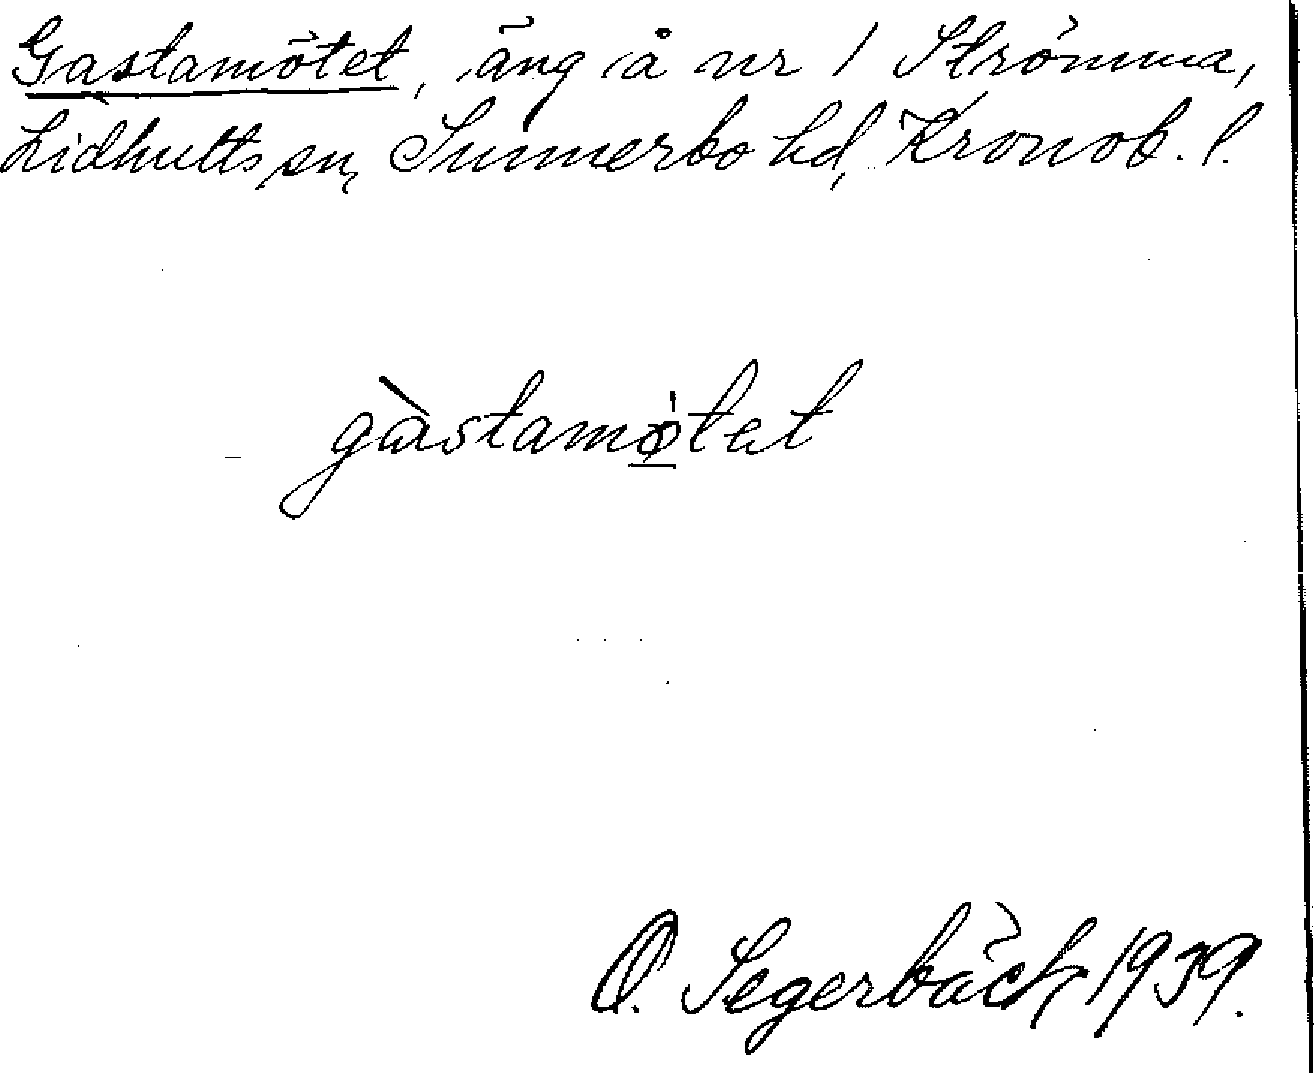 Gastamötet, äng å nr 1 Strömma,
Lidhults sn, Sunnerbo hd, Kronob. l.
gàstamø̱tet
O. Segerbäck 1939.